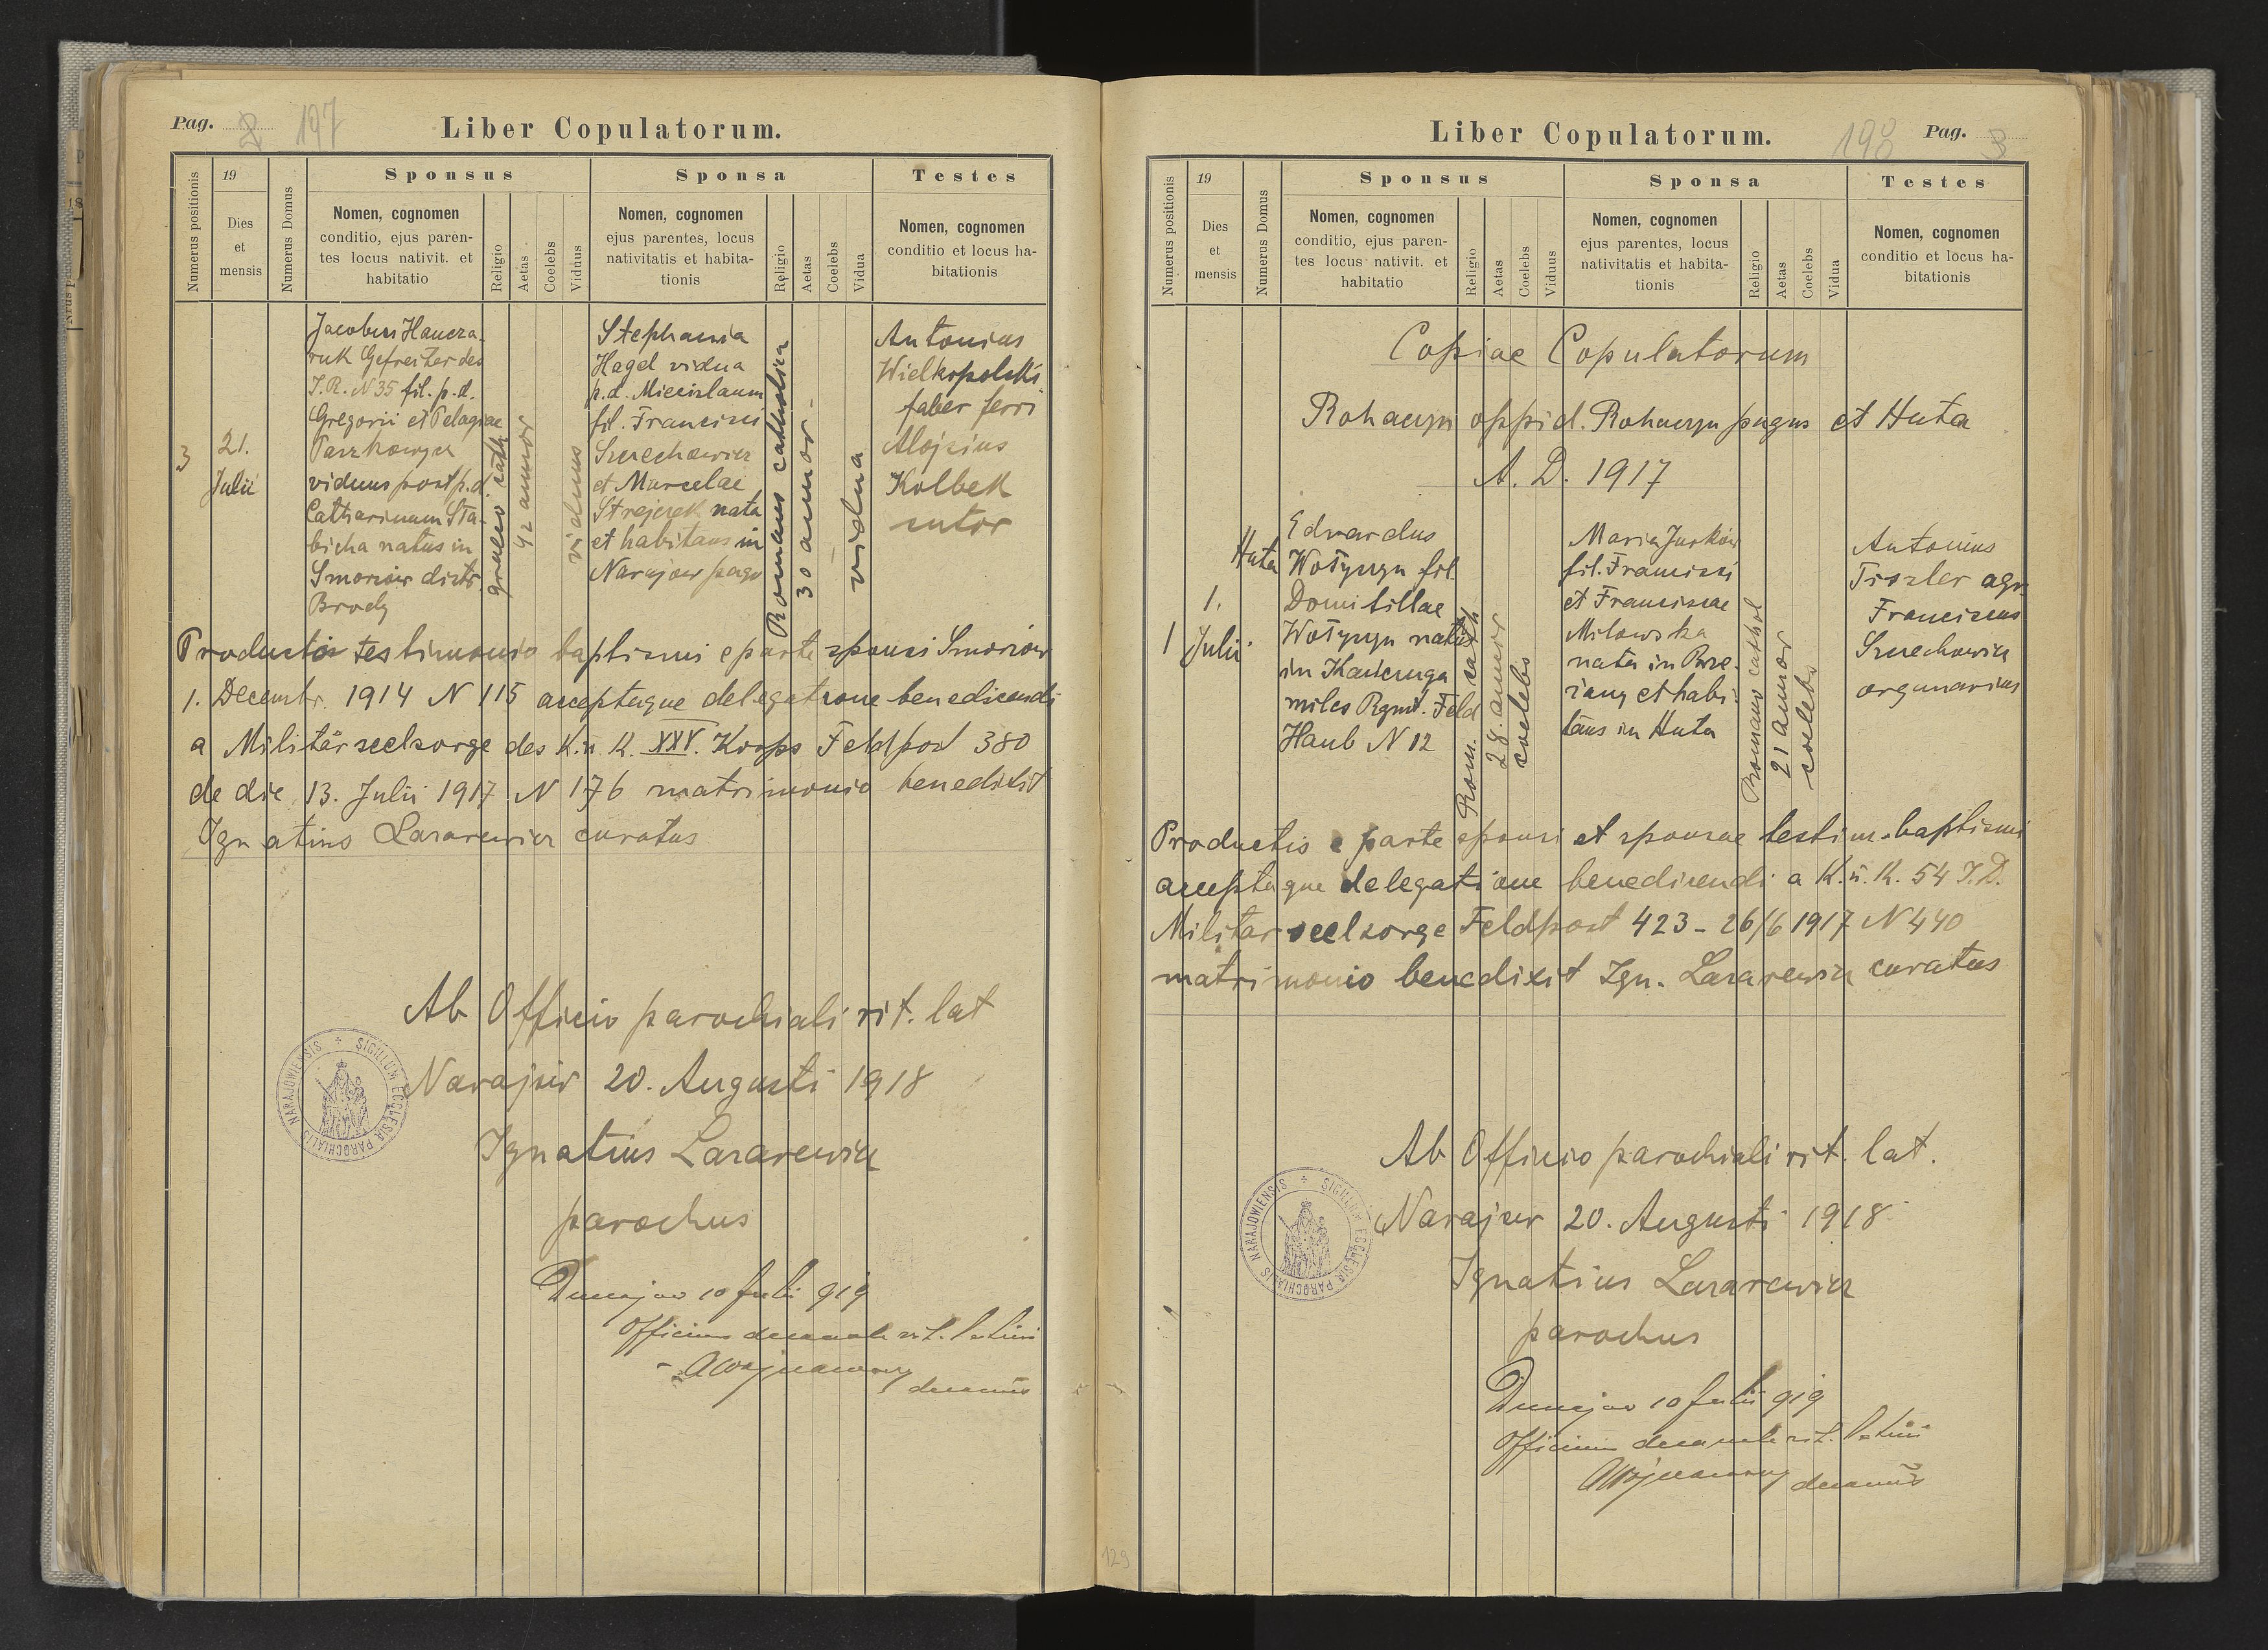 Pag. 2 197
Liber Copulatorum.
Numerus positionis
19
Dies
et
mensis
Numerus Domus
Sponsus
Nomen, cognomen
conditio, ejus paren-
tes locus nativit. et
habitatio
Religio
Aetas
Coelebs
Viduus
Sponsa
Nomen, cognomen
ejus parentes, locus
nativitatis et habita-
tionis
Religio
Aetas
Coelebs
Vidua
Testes
Nomen, cognomen
conditio et locus ha-
bitationis
3
21.
Julii
Jacobus Hancza-
ruk Gefreiter des
I.R. N 35 fil. p.d.
Gregorii et Pelagiae
Parzkowycz
viduus post p.d.
Catharinam Sta-
bicha natus in
Smorzów distr.
Brody
graeco cath.
42 annor
viduus
Stephania
Hagel vidua
p.d. Miecislaum
fil. Francisci
Szrechowicz
et Marcelae
Strejczek nata
et habitans in
Narajow pago
Romano catholica
30 annor-
vidua
Antonius
Wielkopolski
faber ferri
Alojzius
Kolbek
sutor
Producto testimonio baptismi e parte sponsi Smorzow
1. Decembr. 1914 N 115 acceptaque delegatione benedicendi
a Militärseelsorge des K.u.K. XXV. Korps Feldpost 380
de die 13. Julii 1917 N 176 matrimonio benedixit
Ignatius Lazarewicz curatus
Ab Officio parochiali rit. lat
Narajów 20. Augusti 1918
Ignatius Lazarewicz
parochus
SIGILLUM ECCLESIA PAROCHIALIS NARAJOWIENSIS
Dunajow 10 Julii 919
Officium decanale rit. latini
decanus
Liber Copulatorum.
198 Pag. 3
Numerus positionis
19
Dies
et
mensis
Numerus Domus
Sponsus
Nomen, cognomen
conditio, ejus paren-
tes locus nativit. et
habitatio
Religio
Aetas
Coelebs
Viduus
Sponsa
Nomen, cognomen
ejus parentes, locus
nativitatis et habita-
tionis
Religio
Aetas
Coelebs
Vidua
Testes
Nomen, cognomen
conditio et locus ha-
bitationis
Copiae Copulatorum
Rohaczyn oppid. Rohaczyn pagus et Huta
A. D. 1917
1
1.
Julii
Huta
Edvardus
Wołyczyn fil.
Domitillae
Wołyczyn natus
in Kańczuga
miles Rgmt. Feld
Haub N 12
Rom. cath
28. annor
coelebs
Maria Jurków
fil. Francisci
et Franciscae
Milowska
nata in Brze-
żany et habi-
tans in Huta
Romano cathol
21 annor
coelebs
Antonius
Tiszler agr.
Franciscus
Szrechowicz
organarius
Productis e parte sponsi et sponsae testim. baptismi
acceptaque delegatione benedicendi a K.u.K. 54 I.D.
Militarseelsorge Feldpost 423 - 26/6 1917 N 440
matrimonio benedixit Ign. Lazarewicz curatus
Ab Officio parochiali rit. lat.
Narajow 20. Augusti 1918
Ignatius Lazarewicz
parochus
SIGILLUM ECCLESIA PAROCHIALIS NARAJOWIENSIS
Dunajow 10 Julii 919
Officium decanale rit. latini
decanus
129